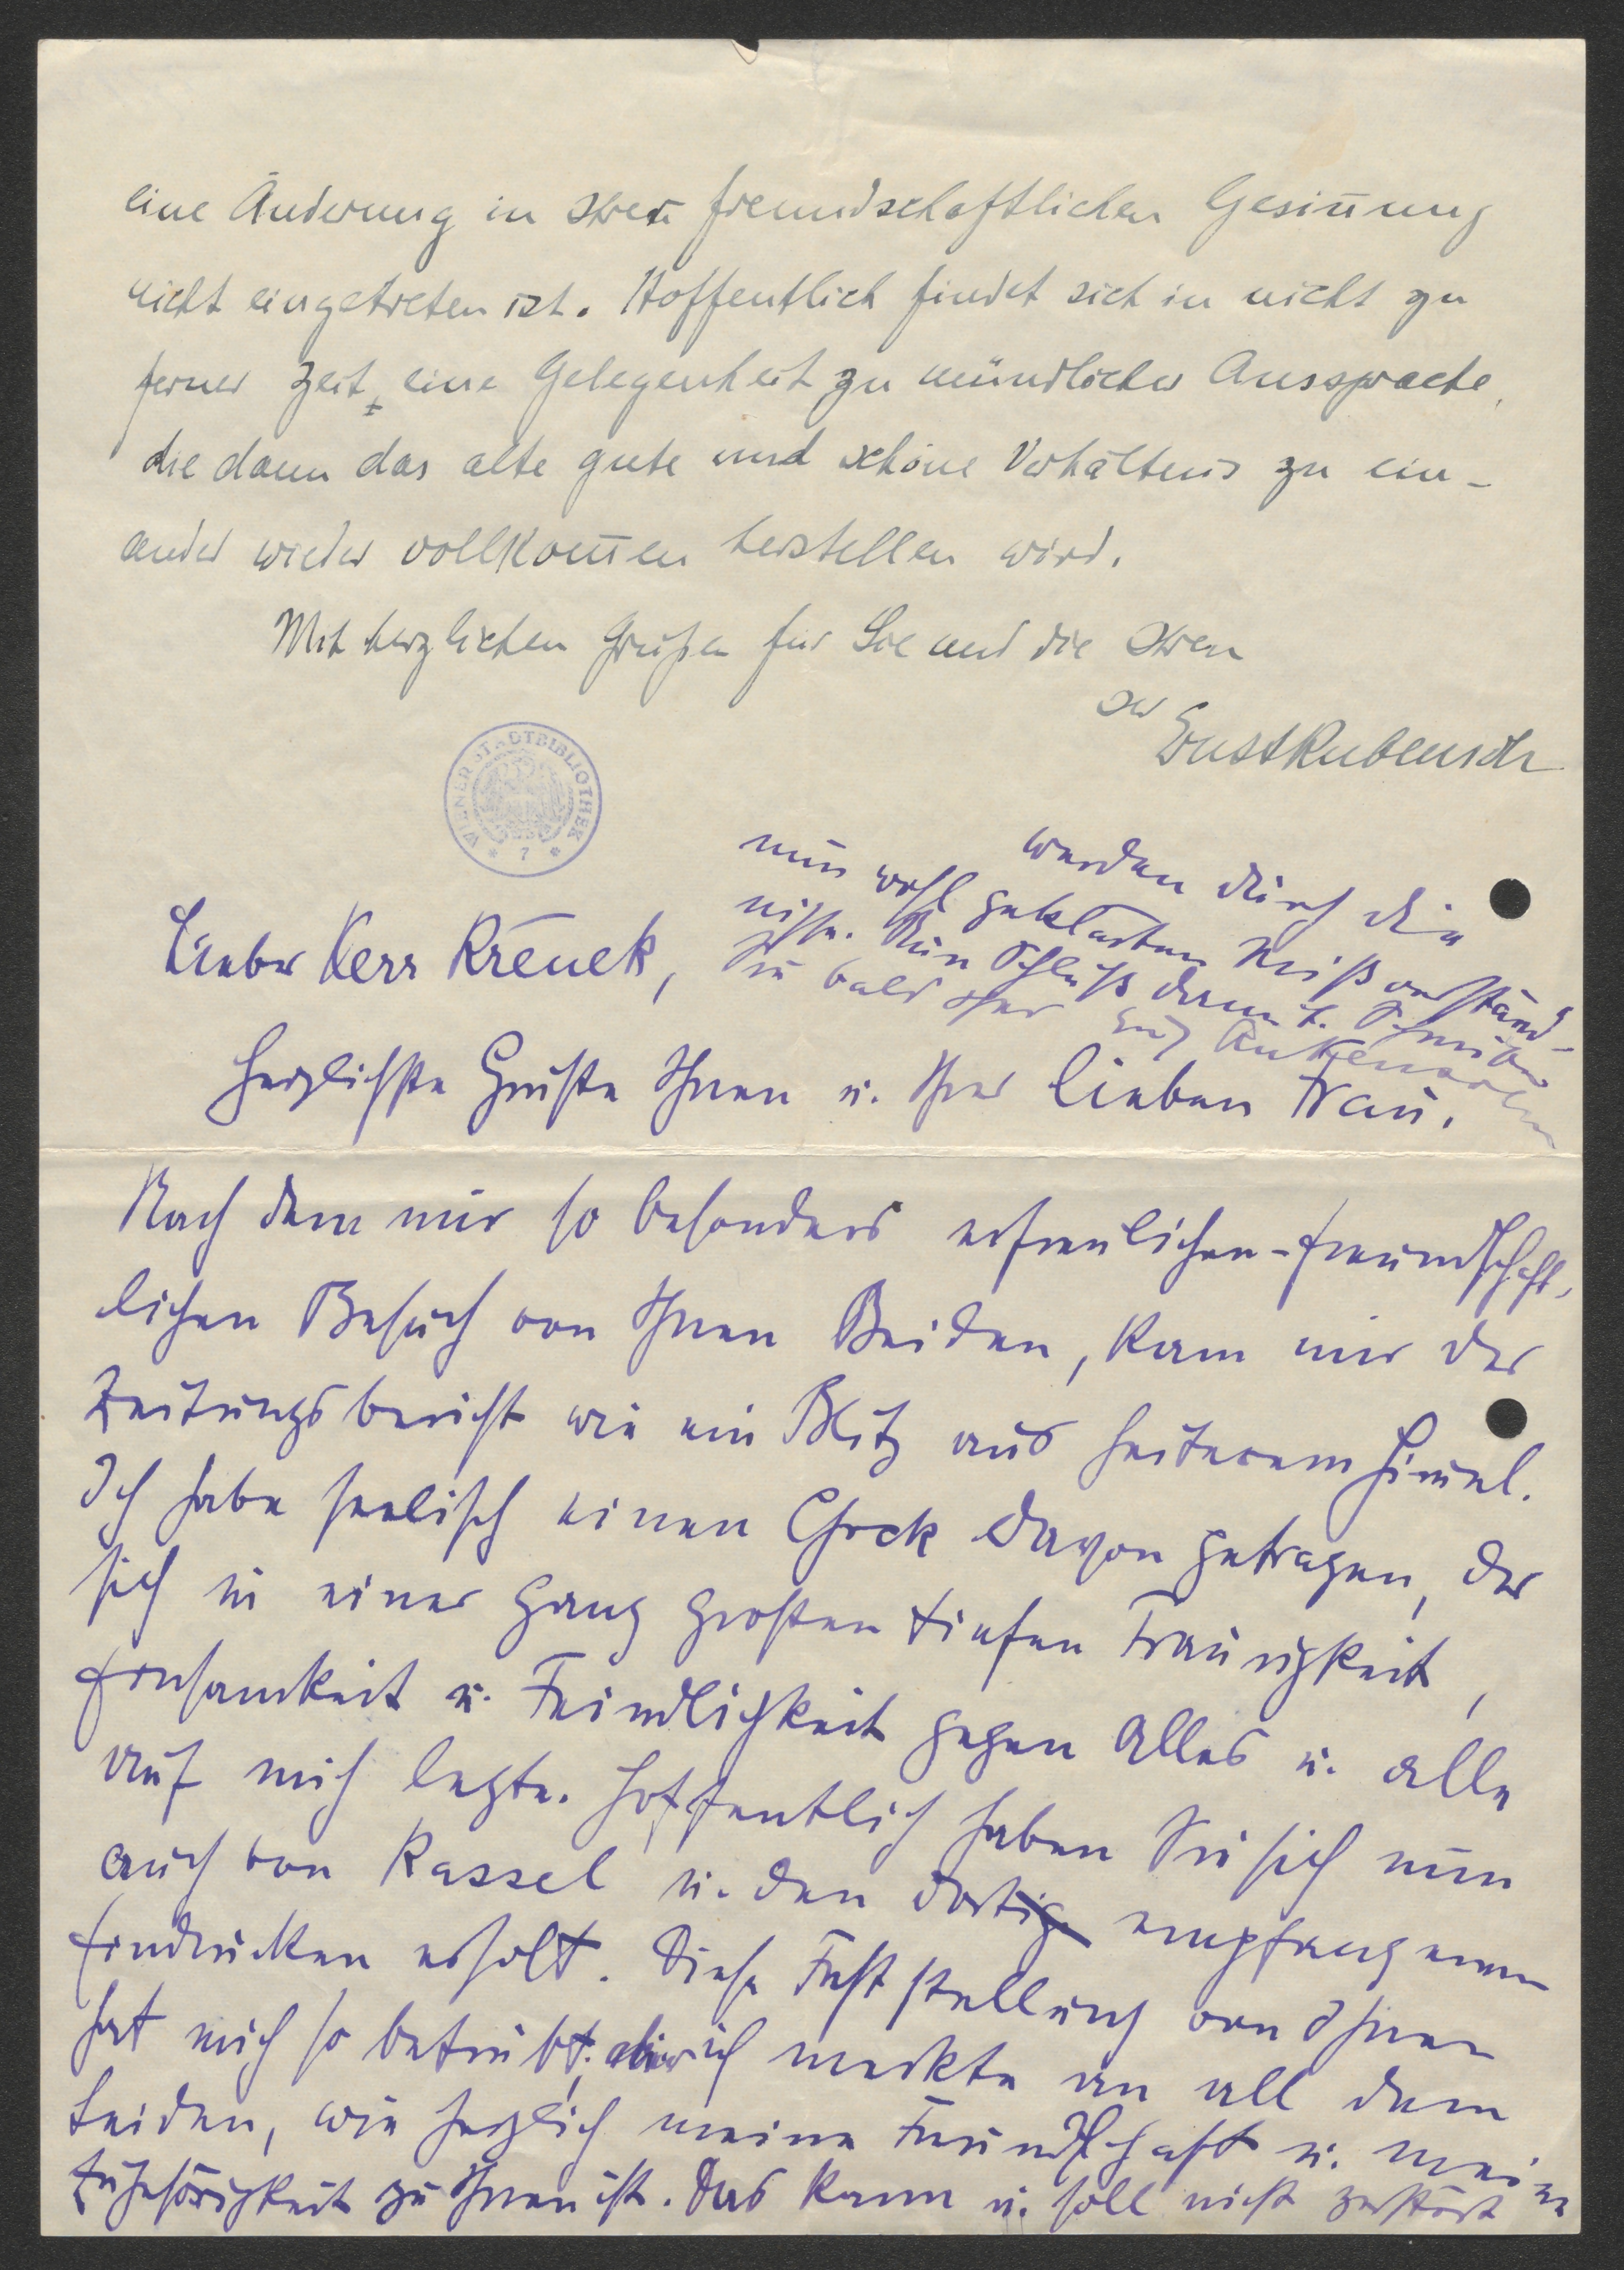 eine Änderung in Ihrer freundschaftlichen Gesinnung
nicht eingetreten ist. Hoffentlich findet sich in nicht zu
ferner Zeit eine Gelegenheit zu mündlicher Aussprache,
die dann das alte gute und schöne Verhältnis zu ein-
ander wieder vollkommen herstellen wird.
Mit herzlichen Grüßen für Sie und die Ihren
Ihr
Ernst Rubensohn
WIENER STADTBIBLIOTHEK
* 7 *
Lieber Herr Křenek,
herzlichste Grüße Ihnen u. Ihrer lieben Frau.
Nach dem mir so besonders erfreulichen-freundschaft-
lichen Besuch von Ihnen Beiden, kam mir der
Zeitungsbericht wie ein Blitz aus heiterem Himmel.
Ich habe seelisch einen Chock davon getragen, der
sich in einer ganz großen tiefen Traurigkeit,
Einsamkeit u. Feindlichkeit gegen Alles u. alle
auf mich legte. Hoffentlich haben Sie sich nun
auch von Kassel u. den dortig empfangenen
Eindrücken erholt. Diese Feststellung von Ihnen
hat mich so betrübt; aber ich merkte an all dem
Leiden, wie herzlich meine Freundschaft u. meine
Zugehörigkeit zu Ihnen ist. Das kann u. soll nicht zerstört
werden durch die
nun wohl geklärten Mißverständ-
nisse. Nun Schluß damit. Schreiben
Sie bald Ihrer